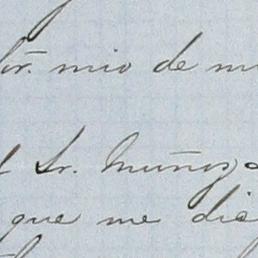 Sr. mio de m
Sr. Muñoz
que me dic